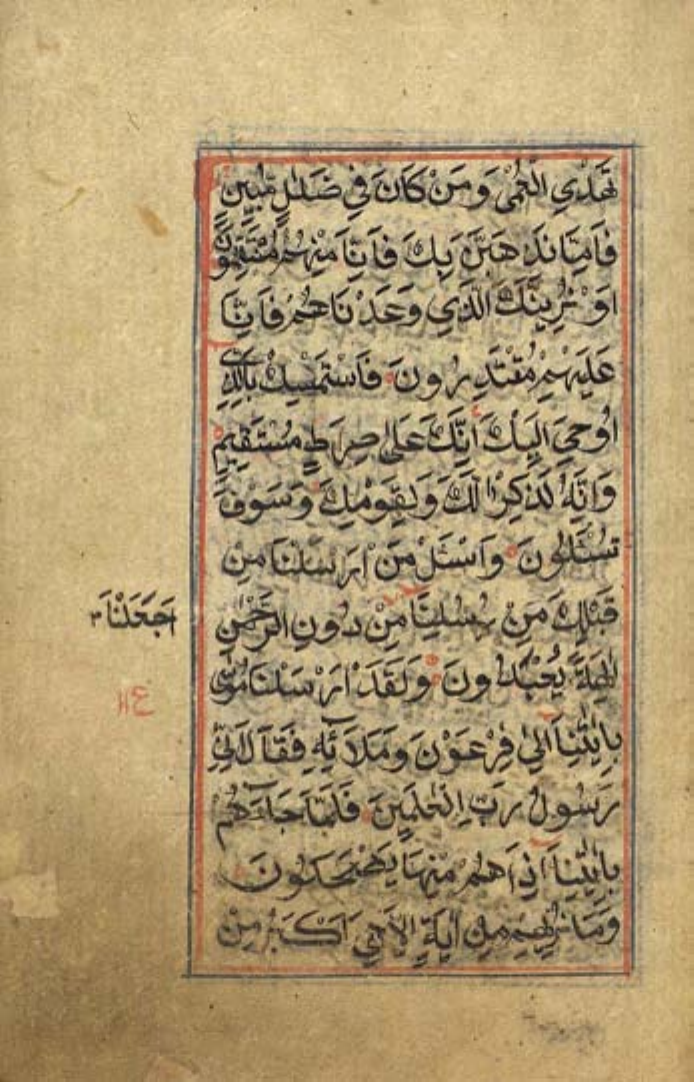 تَهْدِي الْعُمْيَ وَمَنْ كَانَ فِي ضَلٰلٍ مُّبِينٍ
فَاِمَّا نَذْهَبَنَّ بِكَ فَاِنَّا مِنْهُمْ مُنْتَقِمُونَ
اَوْ نُرِيَنَّكَ الَّذِي وَعَدْنَاهُمْ فَاِنَّا
عَلَيْهِمْ مُقْتَدِرُونَ فَاسْتَمْسِكْ بِالَّذِي
اُوحِيَ اِلَيْكَ اِنَّكَ عَلٰى صِرَاطٍ مُسْتَقِيمٍ
وَاِنَّهُ لَذِكْرٌ لَكَ وَلِقَوْمِكَ وَسَوْفَ
تُسْئَلُونَ وَاسْئَلْ مَنْ اَرْسَلْنَا مِنْ
قَبْلِكَ مِنْ رُسُلِنَا مِنْ دُونِ الرَّحْمٰنِ
اَجَعَلْنَا
اٰلِهَةً يُعْبَدُونَ وَلَقَدْ اَرْسَلْنَا مُوسٰى
بِاٰيٰتِنَا اِلٰى فِرْعَوْنَ وَمَلَائِهِ فَقَالَ اِنِّي
رَسُولُ رَبِّ الْعٰلَمِينَ فَلَمَّا جَاءَهُمْ
بِاٰيٰتِنَا اِذَا هُمْ مِنْهَا يَضْحَكُونَ
وَمَا نُرِيهِمْ مِنْ اٰيَةٍ اِلَّا هِيَ اَكْبَرُ مِنْ